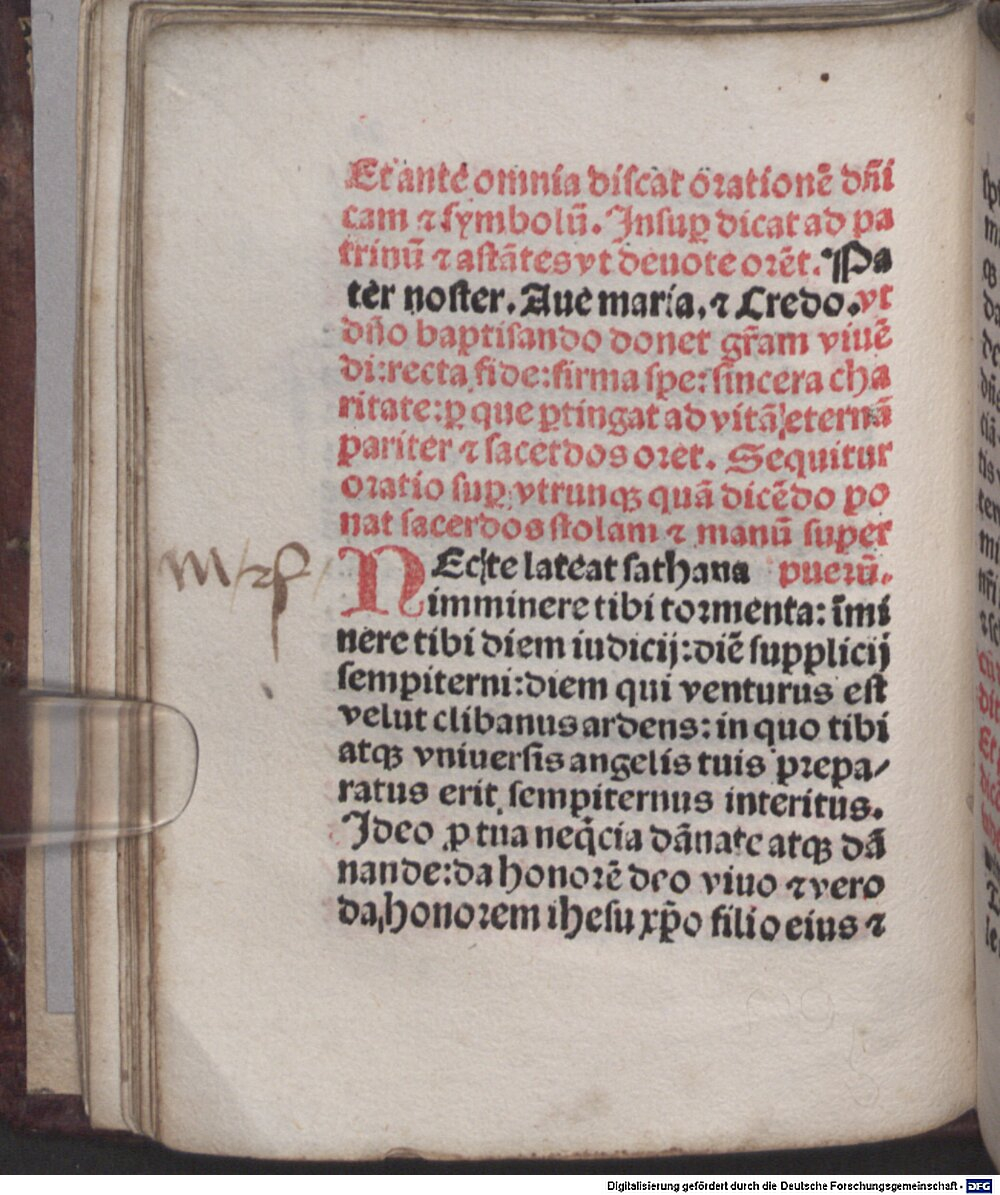 Et ante omnia discāt orationē dn̄i
cam ⁊ symbolū. Insuꝑ dicat ad pa
trinū ⁊ astātes vt deuote orēt. Pa
ter noster. Aue maria. ⁊ Credo. vt
dn̄o baptisando donet gr̄am viuē
di: recta fide: firma spe: sincera cha
ritate: ꝑ que ꝑtingat ad vitā eternā
pariter ⁊ sacerdos oret. Sequitur
oratio suꝑ vtrunqꝫ quā dicēdo po
nat sacerdos stolam ⁊ manū super
NEc te lateat sathana puerū.
imminere tibi tormenta: īmi
nere tibi diem iudicij: diē supplicij
sempiterni: diem qui venturus est
velut clibanus ardens: in quo tibi
atqꝫ vniuersis angelis tuis prepa/
ratus erit sempiternus interitus.
Ideo ꝓ tua neq̄cia dānate atqꝫ dā
nande: da honorē deo viuo ⁊ vero
da honorem ihesu xp̄o filio eius ⁊
Digitalisierung gefördert durch die Deutsche Forschungsgemeinschaft - DFG